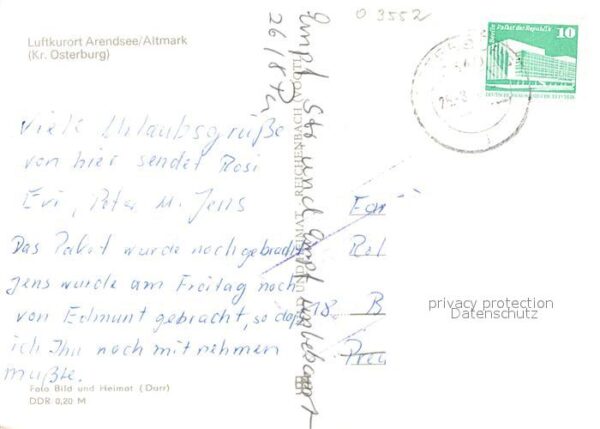 Luftkurort Arendsee/Altmark
(Kr. Osterburg)
Viele Urlaubsgrüße
von hier sendet Rosi
Evi, Peter u. Jens
Das Paket wurde nachgebracht
Jens wurde am Freitag noch
von Edmunt gebracht, so daß
ich Ihn noch mit nehmen
mußte.
Foto Bild und Heimat (Darr)
DDR 0,20 M
Empf. Str und Empf unbekannt
26/8
REICHENBACH
O 3552
Berlin Palast der Republik
10
18.
B
privacy protection
Datenschutz